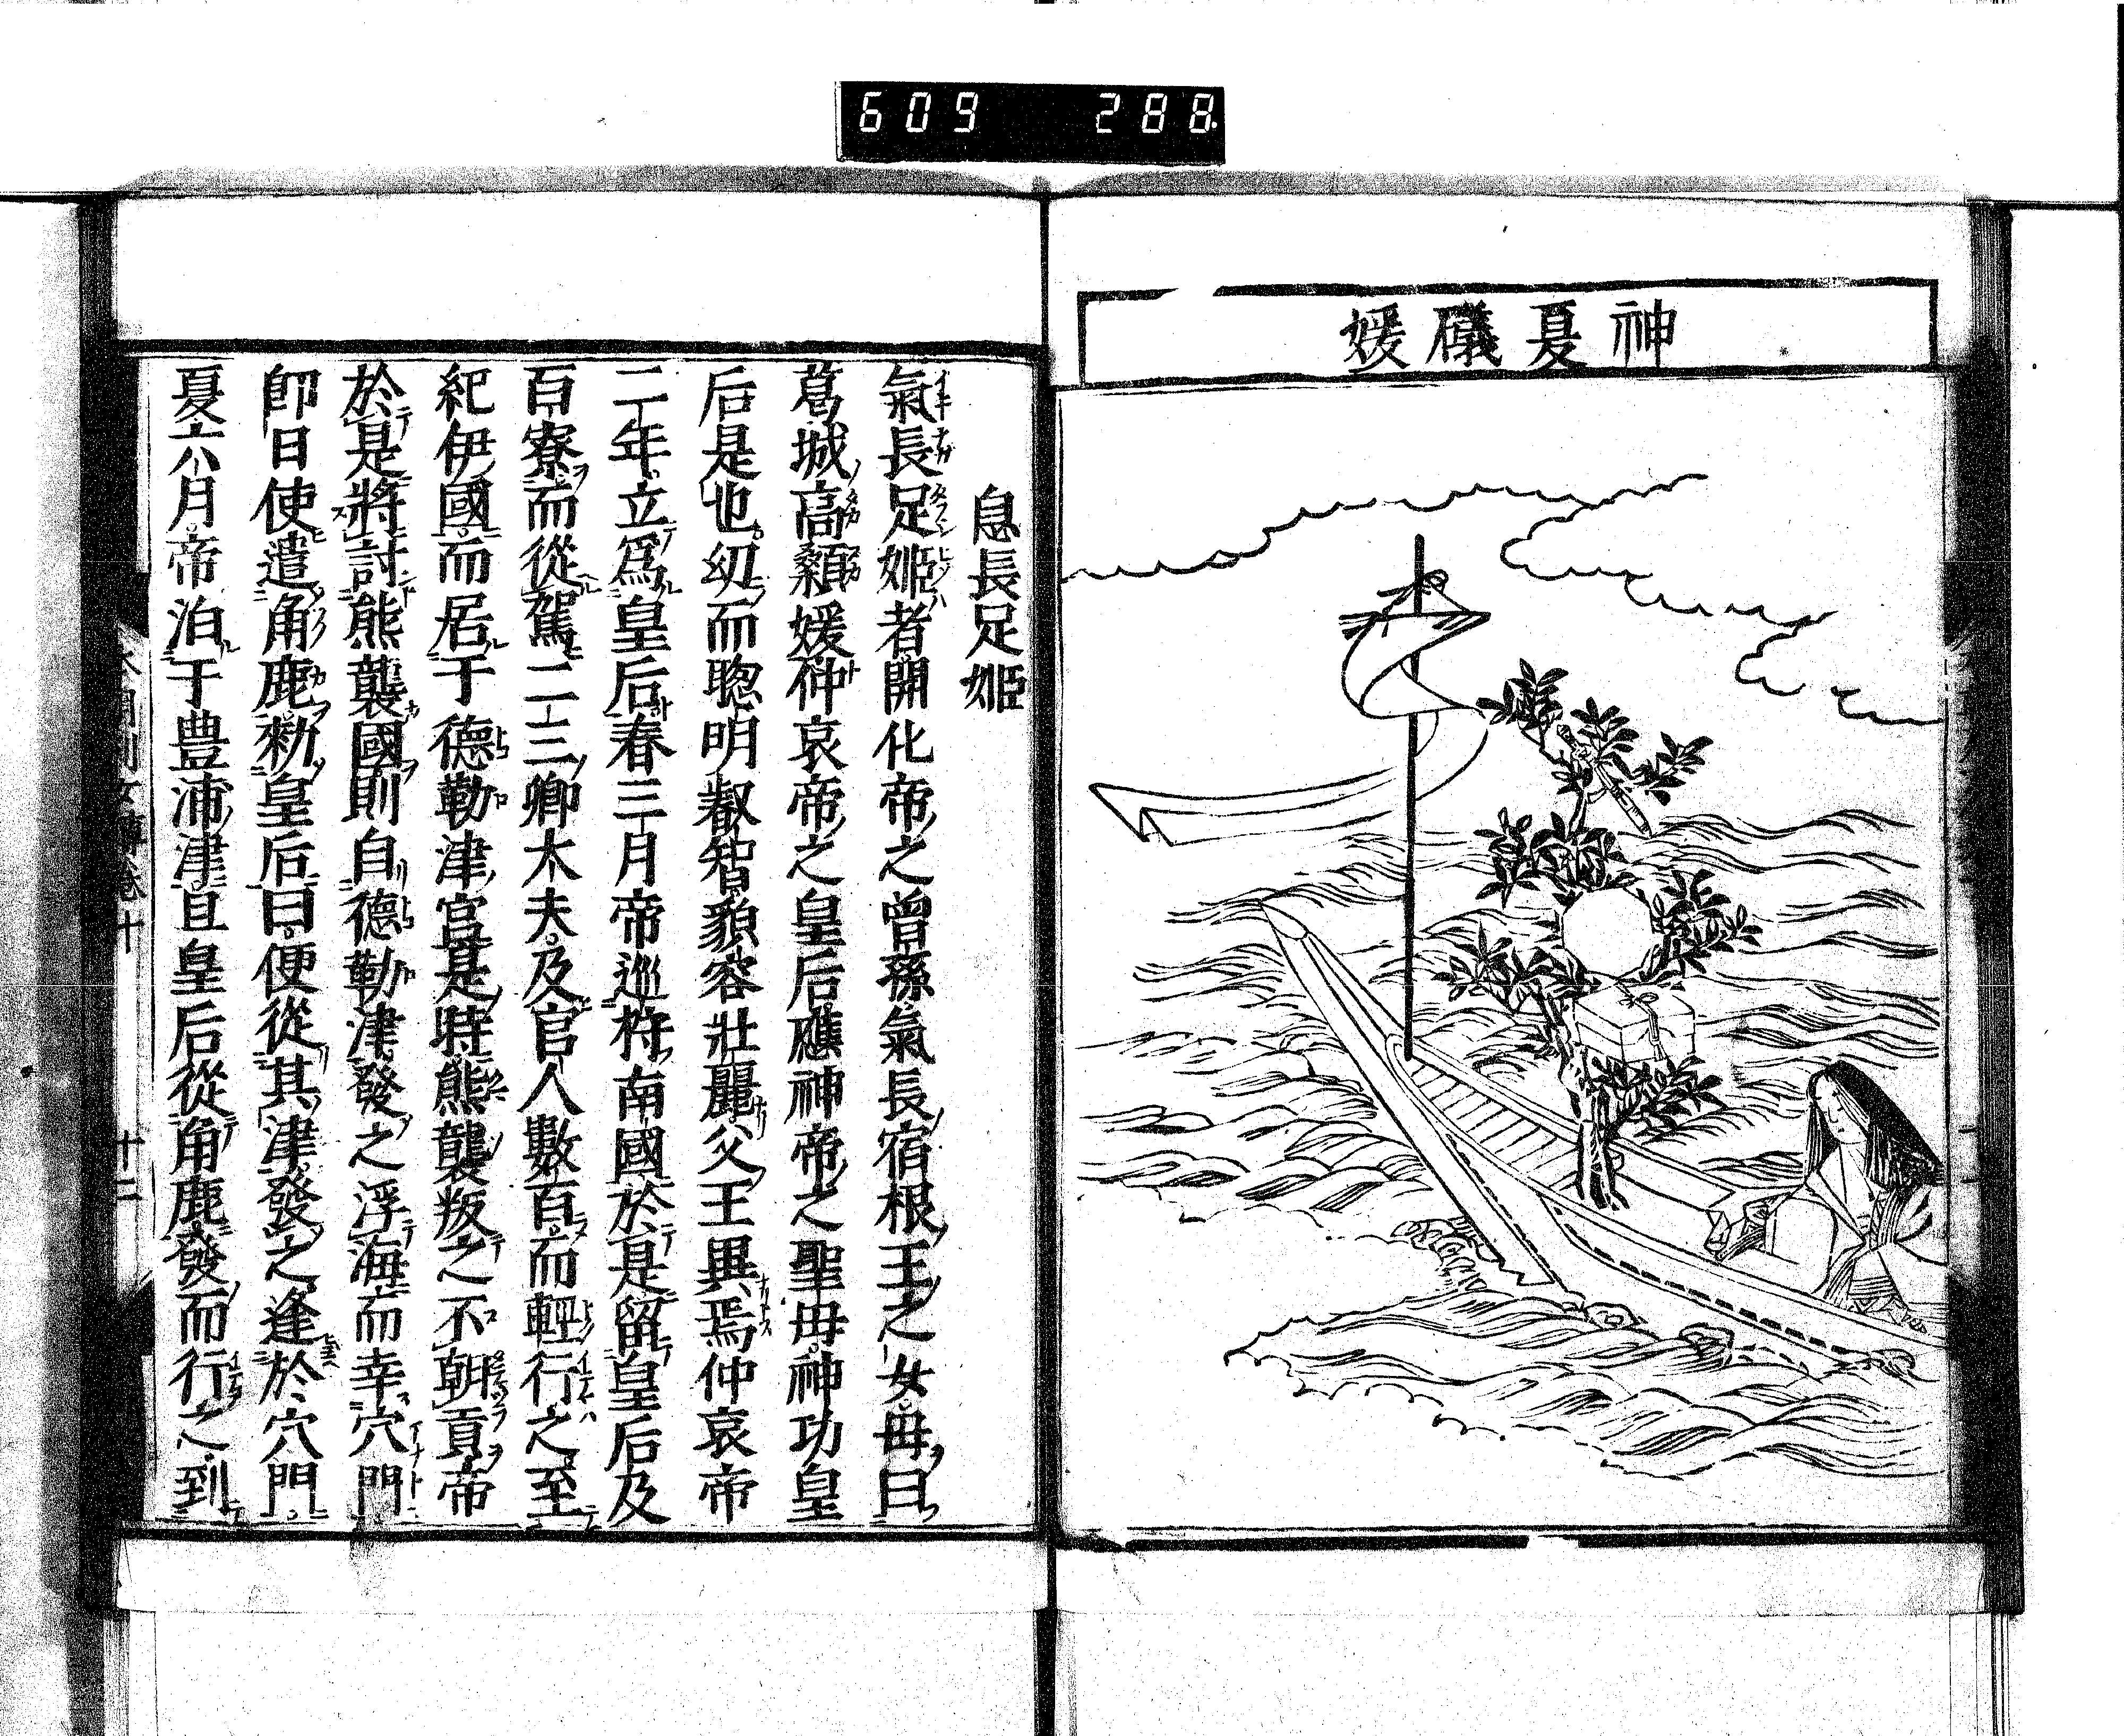 609 288
神夏磯媛
息長足姬
氣長足姬者開化帝之曾孫氣長宿根王之女母曰
葛城高顙媛仲哀帝之皇后應神帝之聖母神功皇
后是也幼而聰明叡智貌容壯麗父王異焉仲哀帝
二年立爲皇后春三月帝巡狩南國於是留皇后及
百寮而從駕二三卿大夫及官人數百而輕行之至
紀伊國而居于德勒津宮是時熊襲叛之不朝貢帝
於是將討熊襲國則自德勒津發之浮海而幸穴門
卽日使遣角鹿勑皇后曰便從其津發之逢於穴門
夏六月帝泊于豊浦津且皇后從角鹿發而行之到
女傳卷十
十二